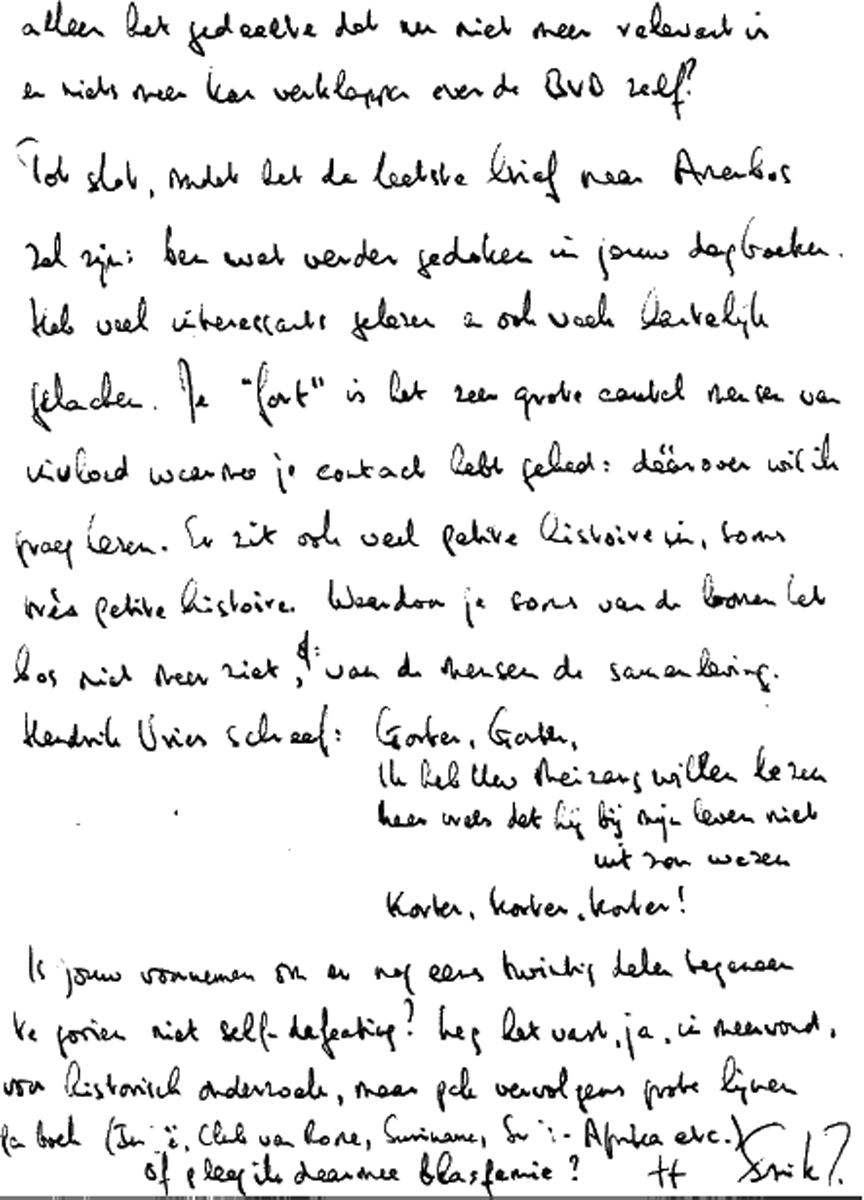 alleen het gedeelte dat nu niet meer relevant is
en niets meer kan verklappen over de BVD zelf?
Tot slot, omdat het de laatste brief naar Arenbos
zal zijn: ben wat verder gedoken in jouw dagboeken.
Heb veel interessants gelezen en ook vaak hartelijk
gelachen. Je "fort" is het zeer grote aantal mensen van
invloed waarmee je contact hebt gehad: dáárover wil ik
graag lezen. Er zit ook veel petite histoire in, soms
très petite histoire. Waardoor je soms van de bomen het
bos niet meer ziet, d: van de mensen de samenleving.
Hendrik Vries schreef: Gorter, Gorter,
Ik heb Uw Mei zang willen lezen
maar vrees dat hij bij mijn leven niet
uit zou wezen
Korter, korter, korter!
Is jouw voornemen om er nog eens twintig delen tegenaan
te gooien niet self-defeating? Leg het vast, ja, in meervoud,
voor historisch onderzoek, maar pak vervolgens grote lijnen
per boek (In ë, Club van Rome, Suriname, - Afrika etc.)
of pleeg ik daarmee blasfemie?